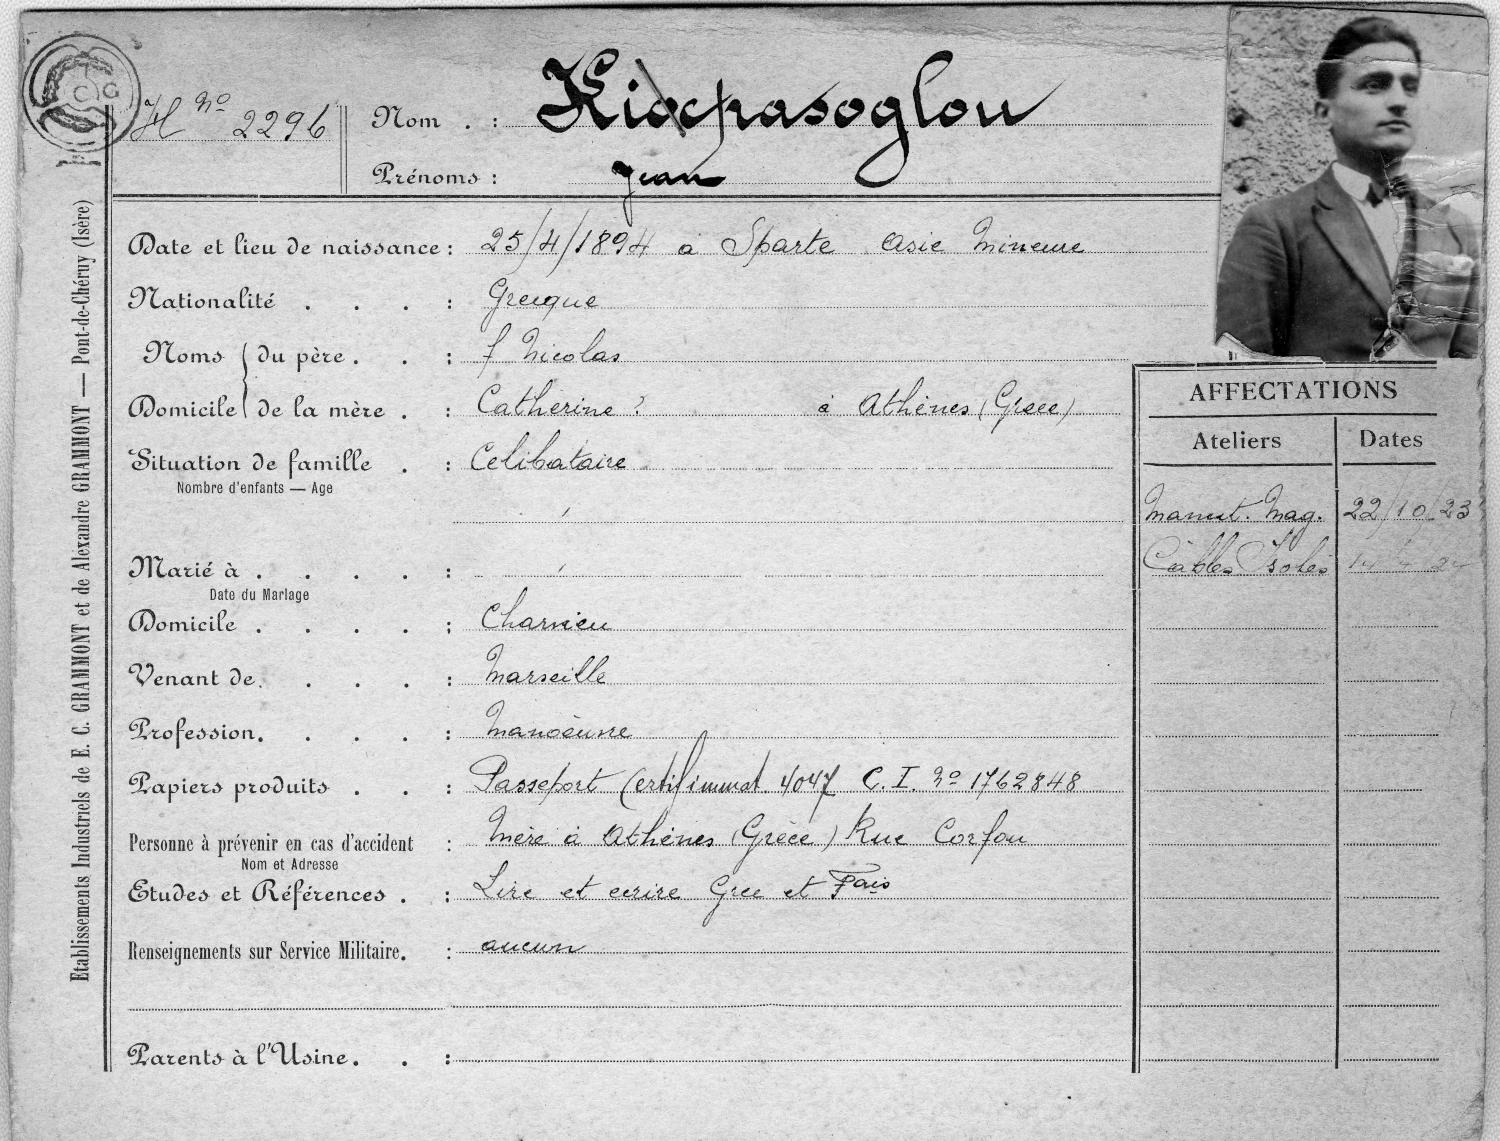 T C G
H No 2296
Nom . : Kiocpasoglou
Prénoms : Jean
Date et lieu de naissance : 25/4/1894 à Sparte Asie Mineure
Nationalité . . . : Grecque
Noms du père . . : f Nicolas
Domicile de la mère . : Catherine ? à Athènes (Grèce)
Situation de famille . : Celibataire
Nombre d'enfants — Age
Marié à . . . . :
Date du Mariage
Domicile . . . . : Charvieu
Venant de . . . . : Marseille
Profession . . . . : Manoeuvre
Papiers produits . . : Passeport Certif immat 4047 C.I. No 1762848
Personne à prévenir en cas d'accident : Mère à Athènes (Grèce) Rue Corfou
Nom et Adresse
Etudes et Références . : Lire et ecrire Grec et Fais
Renseignements sur Service Militaire. : aucun
Parents à l'Usine . . :
AFFECTATIONS
Ateliers Dates
Manut. Mag. 22/10/23
Câbles Isolés
Etablissements Industriels de E. C. GRAMMONT et de Alexandre GRAMMONT — Pont-de-Chéruy (Isère)